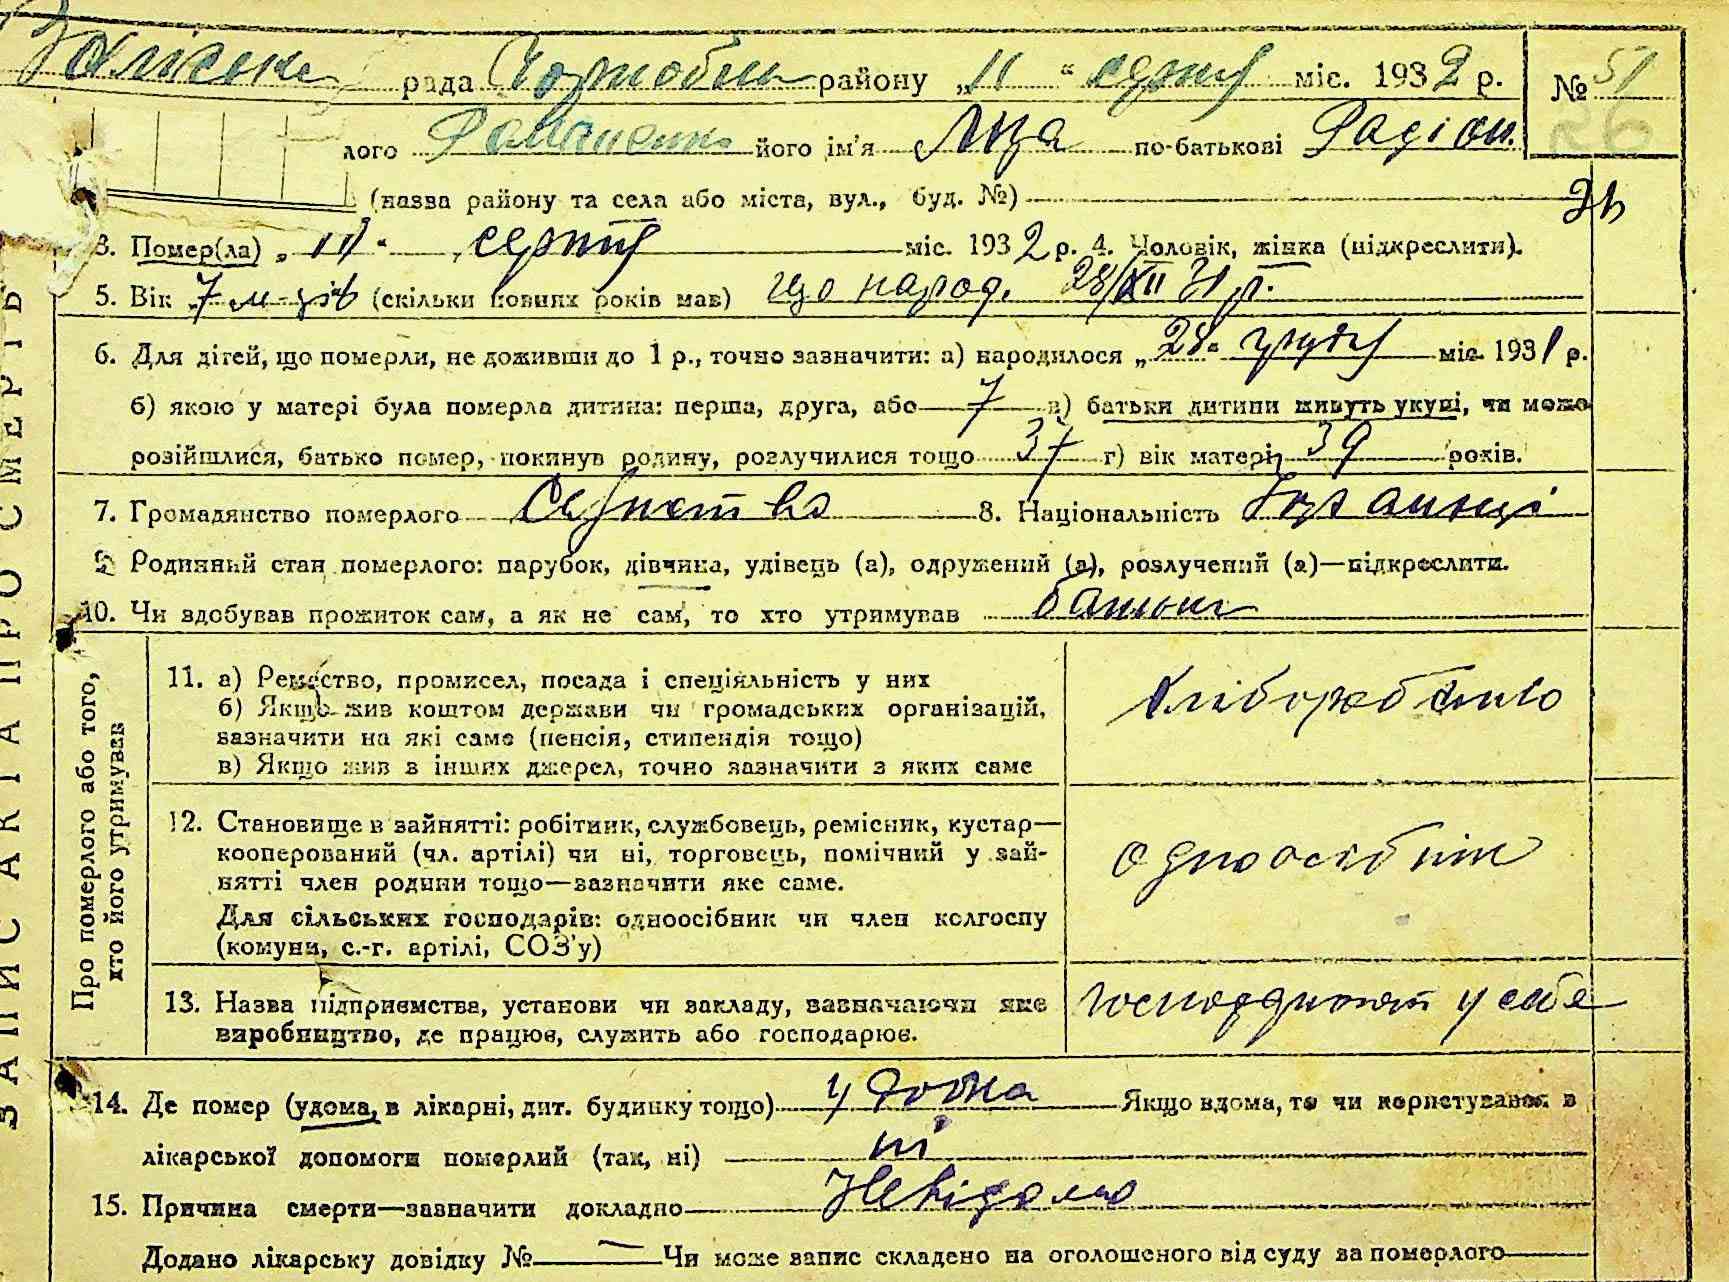 Заліська рада Чорнобил району „11“ серпня міс. 1932 р. № 51
лого його ім'я по-батькові Радіон.
(назва району та села або міста, вул., буд. №)
3. Помер(ла) „11“ серпня міс. 1932 р. 4. Чоловік, жінка (підкреслити).
5. Вік 7 м-ців (скільки повних років мав) що народ. 28/XII 31 р.
6. Для дітей, що померли, не доживши до 1 р., точно зазначити: а) народилося „28“ грудня міс. 1931 р.
б) якою у матері була померла дитина: перша, друга, або 7 в) батьки дитини живуть укупі, чи може
розійшлися, батько помер, покинув родину, розлучилися тощо 37 г) вік матері 39 років.
7. Громадянство померлого 8. Національність
9. Родинний стан померлого: парубок, дівчина, удівець (а), одружений (а), розлучений (а)—підкреслити.
10. Чи здобував прожиток сам, а як не сам, то хто утримував батьки
ЗАПИС АКТА ПРО СМЕРТЬ
Про померлого або того, хто його утримував
11. а) Ремество, промисел, посада і спеціяльність у них
б) Якщо жив коштом держави чи громадських організацій,
зазначити на які саме (пенсія, стипендія тощо)
в) Якщо жив з інших джерел, точно зазначити з яких саме
12. Становище в зайнятті: робітник, службовець, ремісник, кустар—
кооперований (чл. артілі) чи ні, торговець, помічний у зай-
нятті член родини тощо—зазначити яке саме.
Для сільських господарів: одноосібник чи член колгоспу
(комуни, с.-г. артілі, СОЗ'у)
одноосібник
13. Назва підприємства, установи чи закладу, зазначаючи яке
виробництво, де працює, служить або господарює.
у себе
14. Де помер (удома, в лікарні, дит. будинку тощо) у дома Якщо вдома, то чи користувався з
лікарської допомоги померлий (так, ні) ні
15. Причина смерти—зазначити докладно Невідомо
Додано лікарську довідку № — Чи може запис складено на оголошеного від суду за померлого